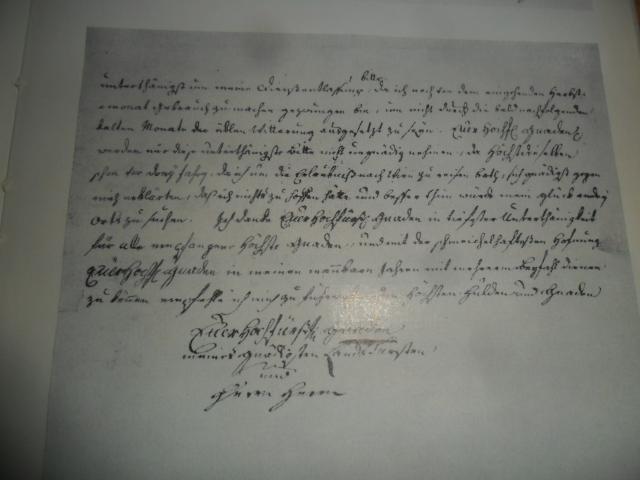 unterthänigst um meine Dienstentlassung bitte, da ich noch vor dem eingehenden Herbst-
monat gebrauch zu machen gezwungen bin, um nicht durch die bald nachfolgenden
kalten Monate der üblen Witterung ausgesetzt zu seyn. Euer Hochf: Gnaden etc:
werden mir diese unterthänigste Bitte nicht ungnädig nehmen, da Höchstdieselben
schon vor drey Jahren, da ich um die Erlaubniß nach Wien zu reisen bath, sich gnädigst gegen
mich erklärten, daß ich nichts zu hoffen hätte und besser thun würde mein glück andern
Orts zu suchen. Ich danke Euer Hochfürstl: Gnaden in tiefester Unterthänigkeit
für alle empfangene Höchste Gnaden, und mit der schmeichelhaftesten Hofnung
Euer Hochf: Gnaden in meinen mannbaren Jahren mit mehrern Beyfahl dienen
zu können empfehle ich mich zu höchsten Hulden und Gnaden
Euer Hochfürstl: Gnaden
meines Gnädigsten Landsfürsten
und
Herrn Herrn